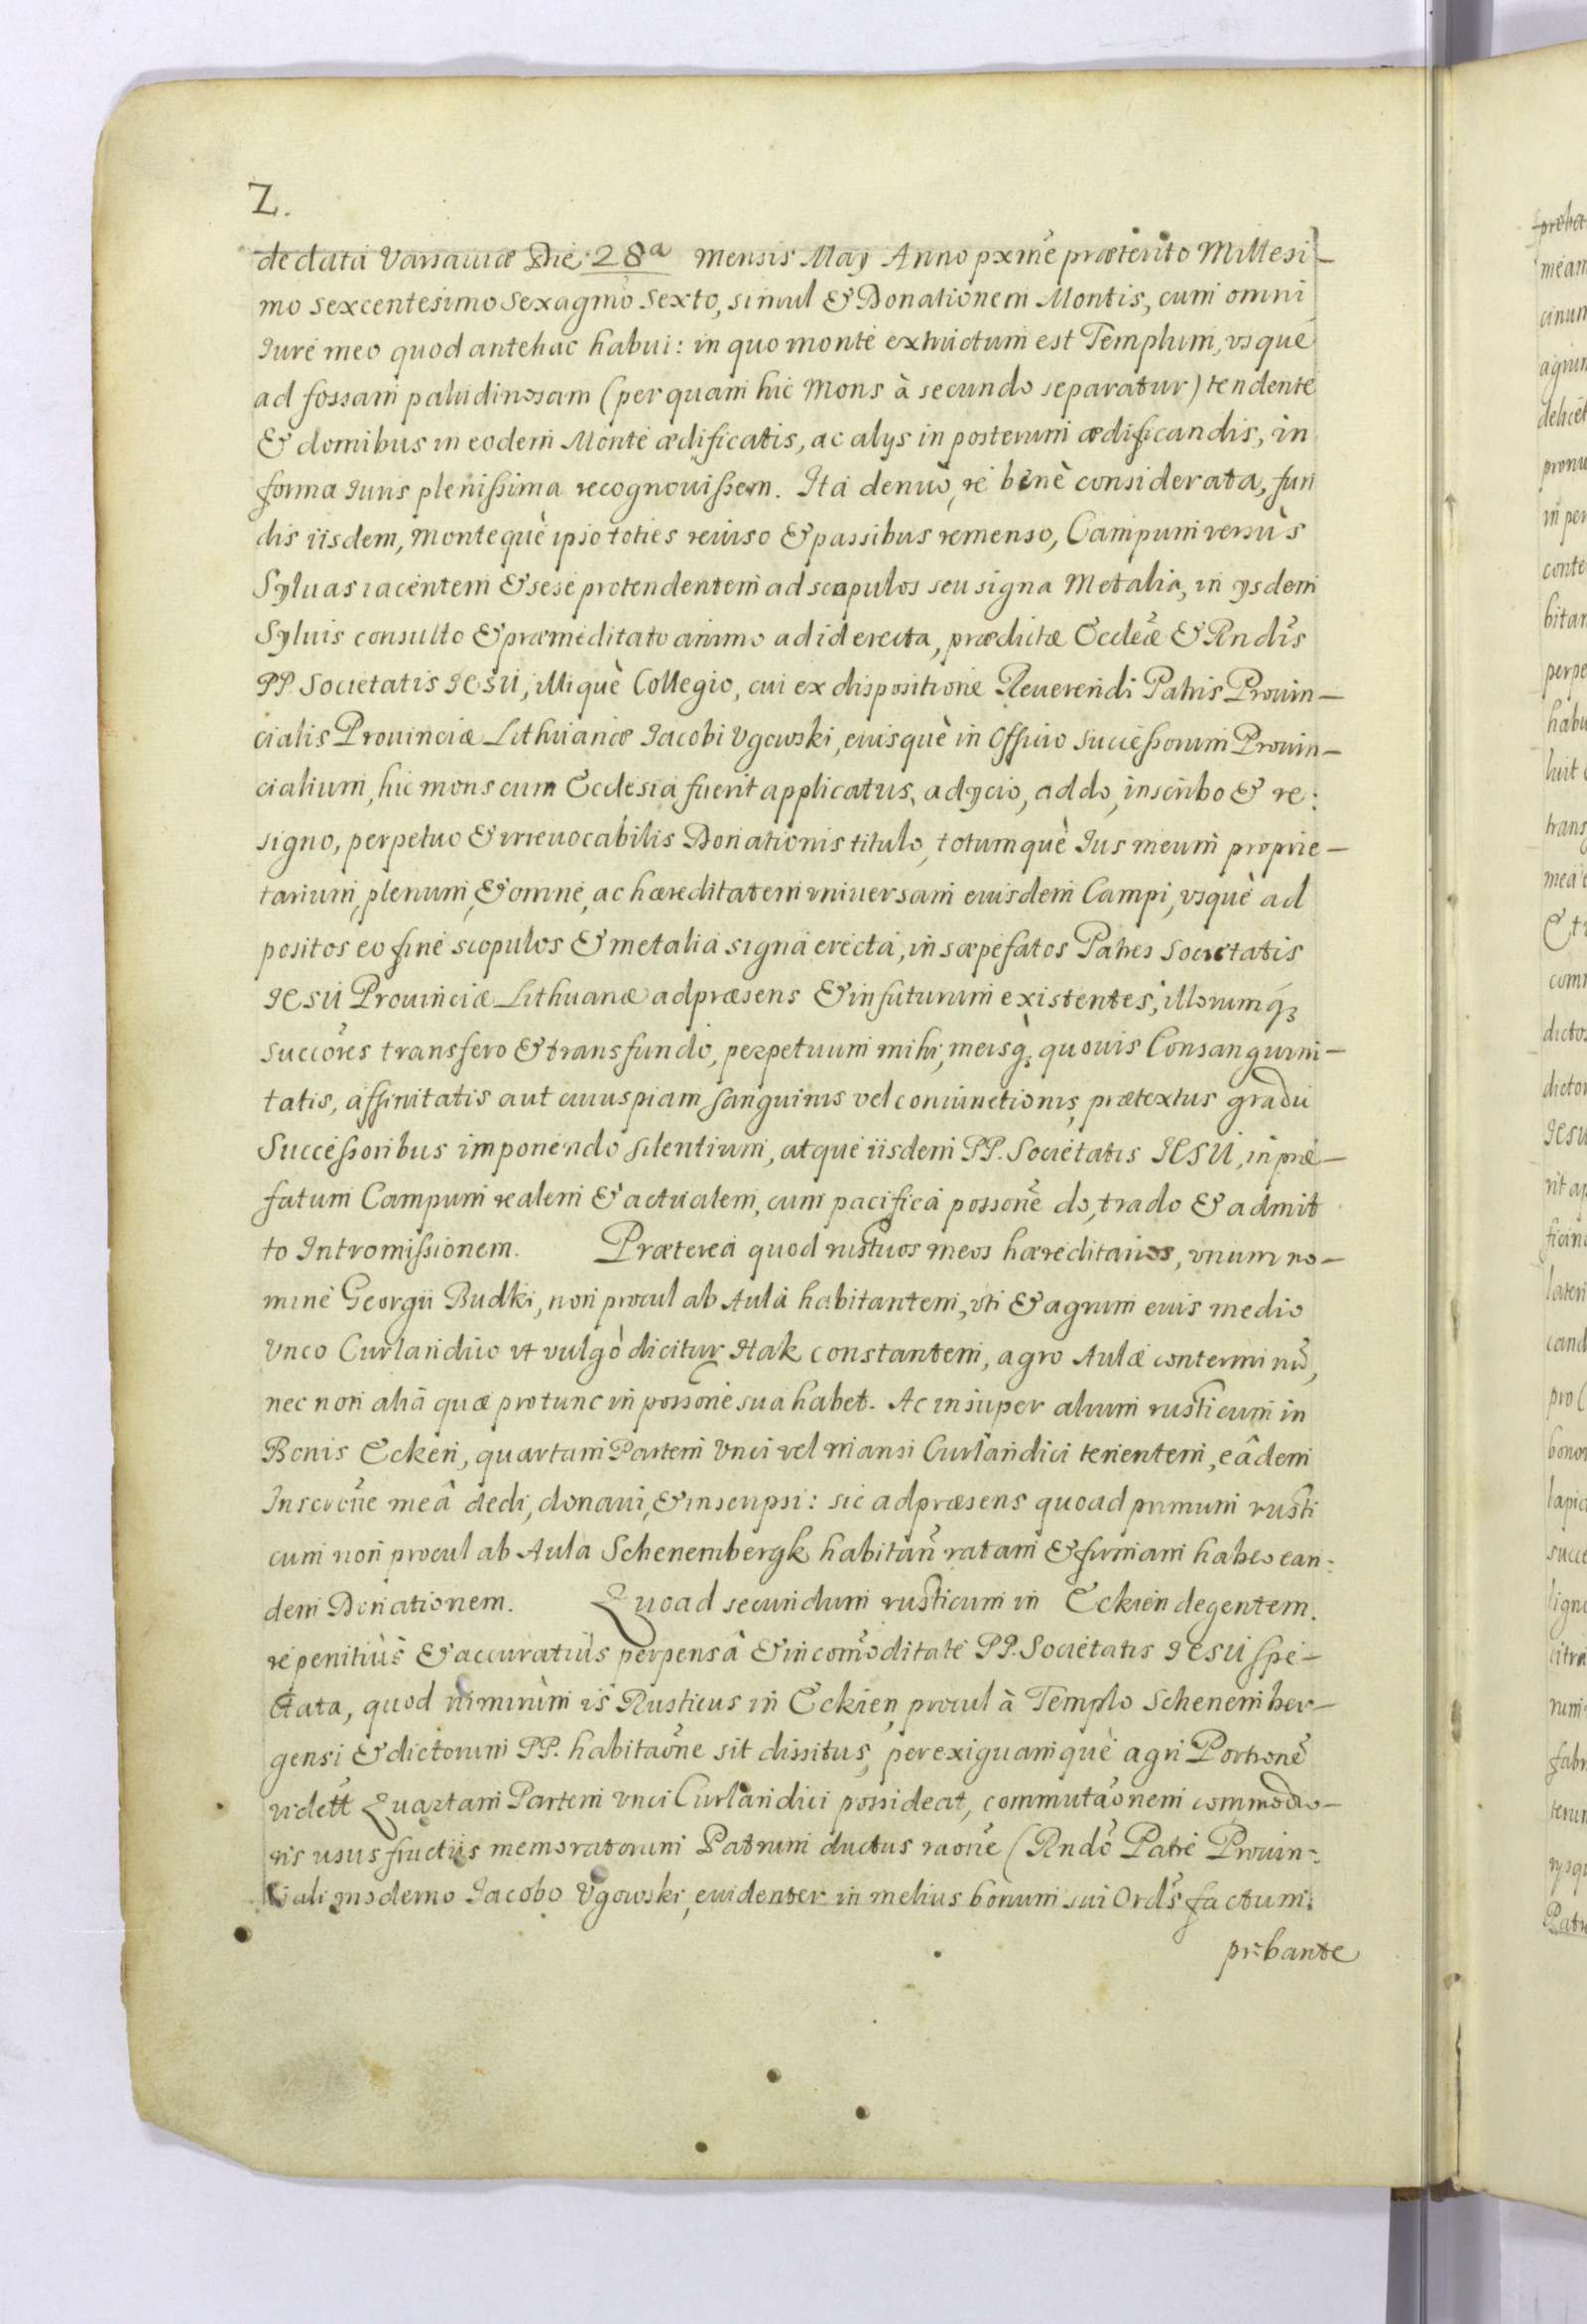 2.
de data Varsauiæ Die 28ª mensis May Anno pxme præterito Millesi-
mo sexcentesimo sexagmo sexto, simul & Donationem Montis, cum omni
Iure meo quod antehac habui: in quo monte extructum est Templum, vsque
ad fossam paludinosam (per quam hic Mons à secundo separatur) tendente
& domibus in eodem Monte ædificatis, ac alys in posterum ædificandis, in
forma Iuris plenissima recognouissem. Ita denuò, re benè considerata, fun
dis iisdem, montequè ipso toties reuiso & passibus remenso, Campum versùs
Syluas iacentem & sese protendentem ad scopulos seu signa Metalia, in ysdem
Syluis consulto & præmeditato animo ad id erecta, prædictæ Eccleæ & Rndis
PP. Societatis IESU, illiquè Collegio, cui ex dispositione Reuerendi Patris Prouin-
cialis Prouinciæ Lithuaniæ Iacobi Vgowski, eiusquè in Officio Successorum Prouin-
cialium, hic mons cum Ecclesia fuerit applicatus, adycio, addo, inscribo & re:
signo, perpetuo & irreuocabilis Donationis titulo, totumquè Ius meum proprie-
tarium, plenum, & omne, ac hæreditatem vniuersam eiusdem Campi, vsquè ad
positos eo fine scopulos & metalia signa erecta, in sæpefatos Patres Societatis
IESU Prouinciæ Lithuanæ ad præsens & in futurum existentes, illorumq;
succores transfero & transfundo, perpetuum mihi, meisq; quouis Consanguini-
tatis, affinitatis aut cuiuspiam sanguinis vel coniunctionis prætextus gradu
Successoribus imponendo silentium, atque iisdem PP. Societatis IESU, in præ-
fatum Campum realem & actualem, cum pacifica possone do, trado & admit
to Intromissionem. Præterea quod rusticos meos hæreditarios, vnum no-
mine Georgii Budki, non procul ab Aula habitantem, vti & agrum eius medio
Vnco Curlandico vt vulgò dicitur Hak constantem, agro Aulæ conterminũ,
nec non aliã quæ pro tunc in possone sua habet. Ac insuper alium rusticum in
Bonis Ecken, quartam Partem Vnci vel mansi Curlandici tenentem, eâdem
Inscrone meâ dedi, donaui, & inscripsi: sic ad præsens quoad primum rusti
cum non procul ab Aula Schenembergk habitan ratam & firmam habeo ean:
dem Donationem. Quoad secundum rusticum in Eckien degentem.
re penitiùs & accuratiùs perpensâ & incomoditate PP. Societatis IESU spe-
ctata, quod nimirùm is Rusticus in Eckien, procul à Templo Schenember-
gensi & dictorum PP. habitaone sit dissitus, perexiguamquè agri Portionẽ
vidett Quartam Partem vnci Curlandici possideat, commutaonem commodio-
ris ususfructûs memoratorum Patrum ductus raone (Rndo Patre Prouin-
ciali moderno Iacobo Vgowski, euidenter in melius bonum sui Ords factum.
probante